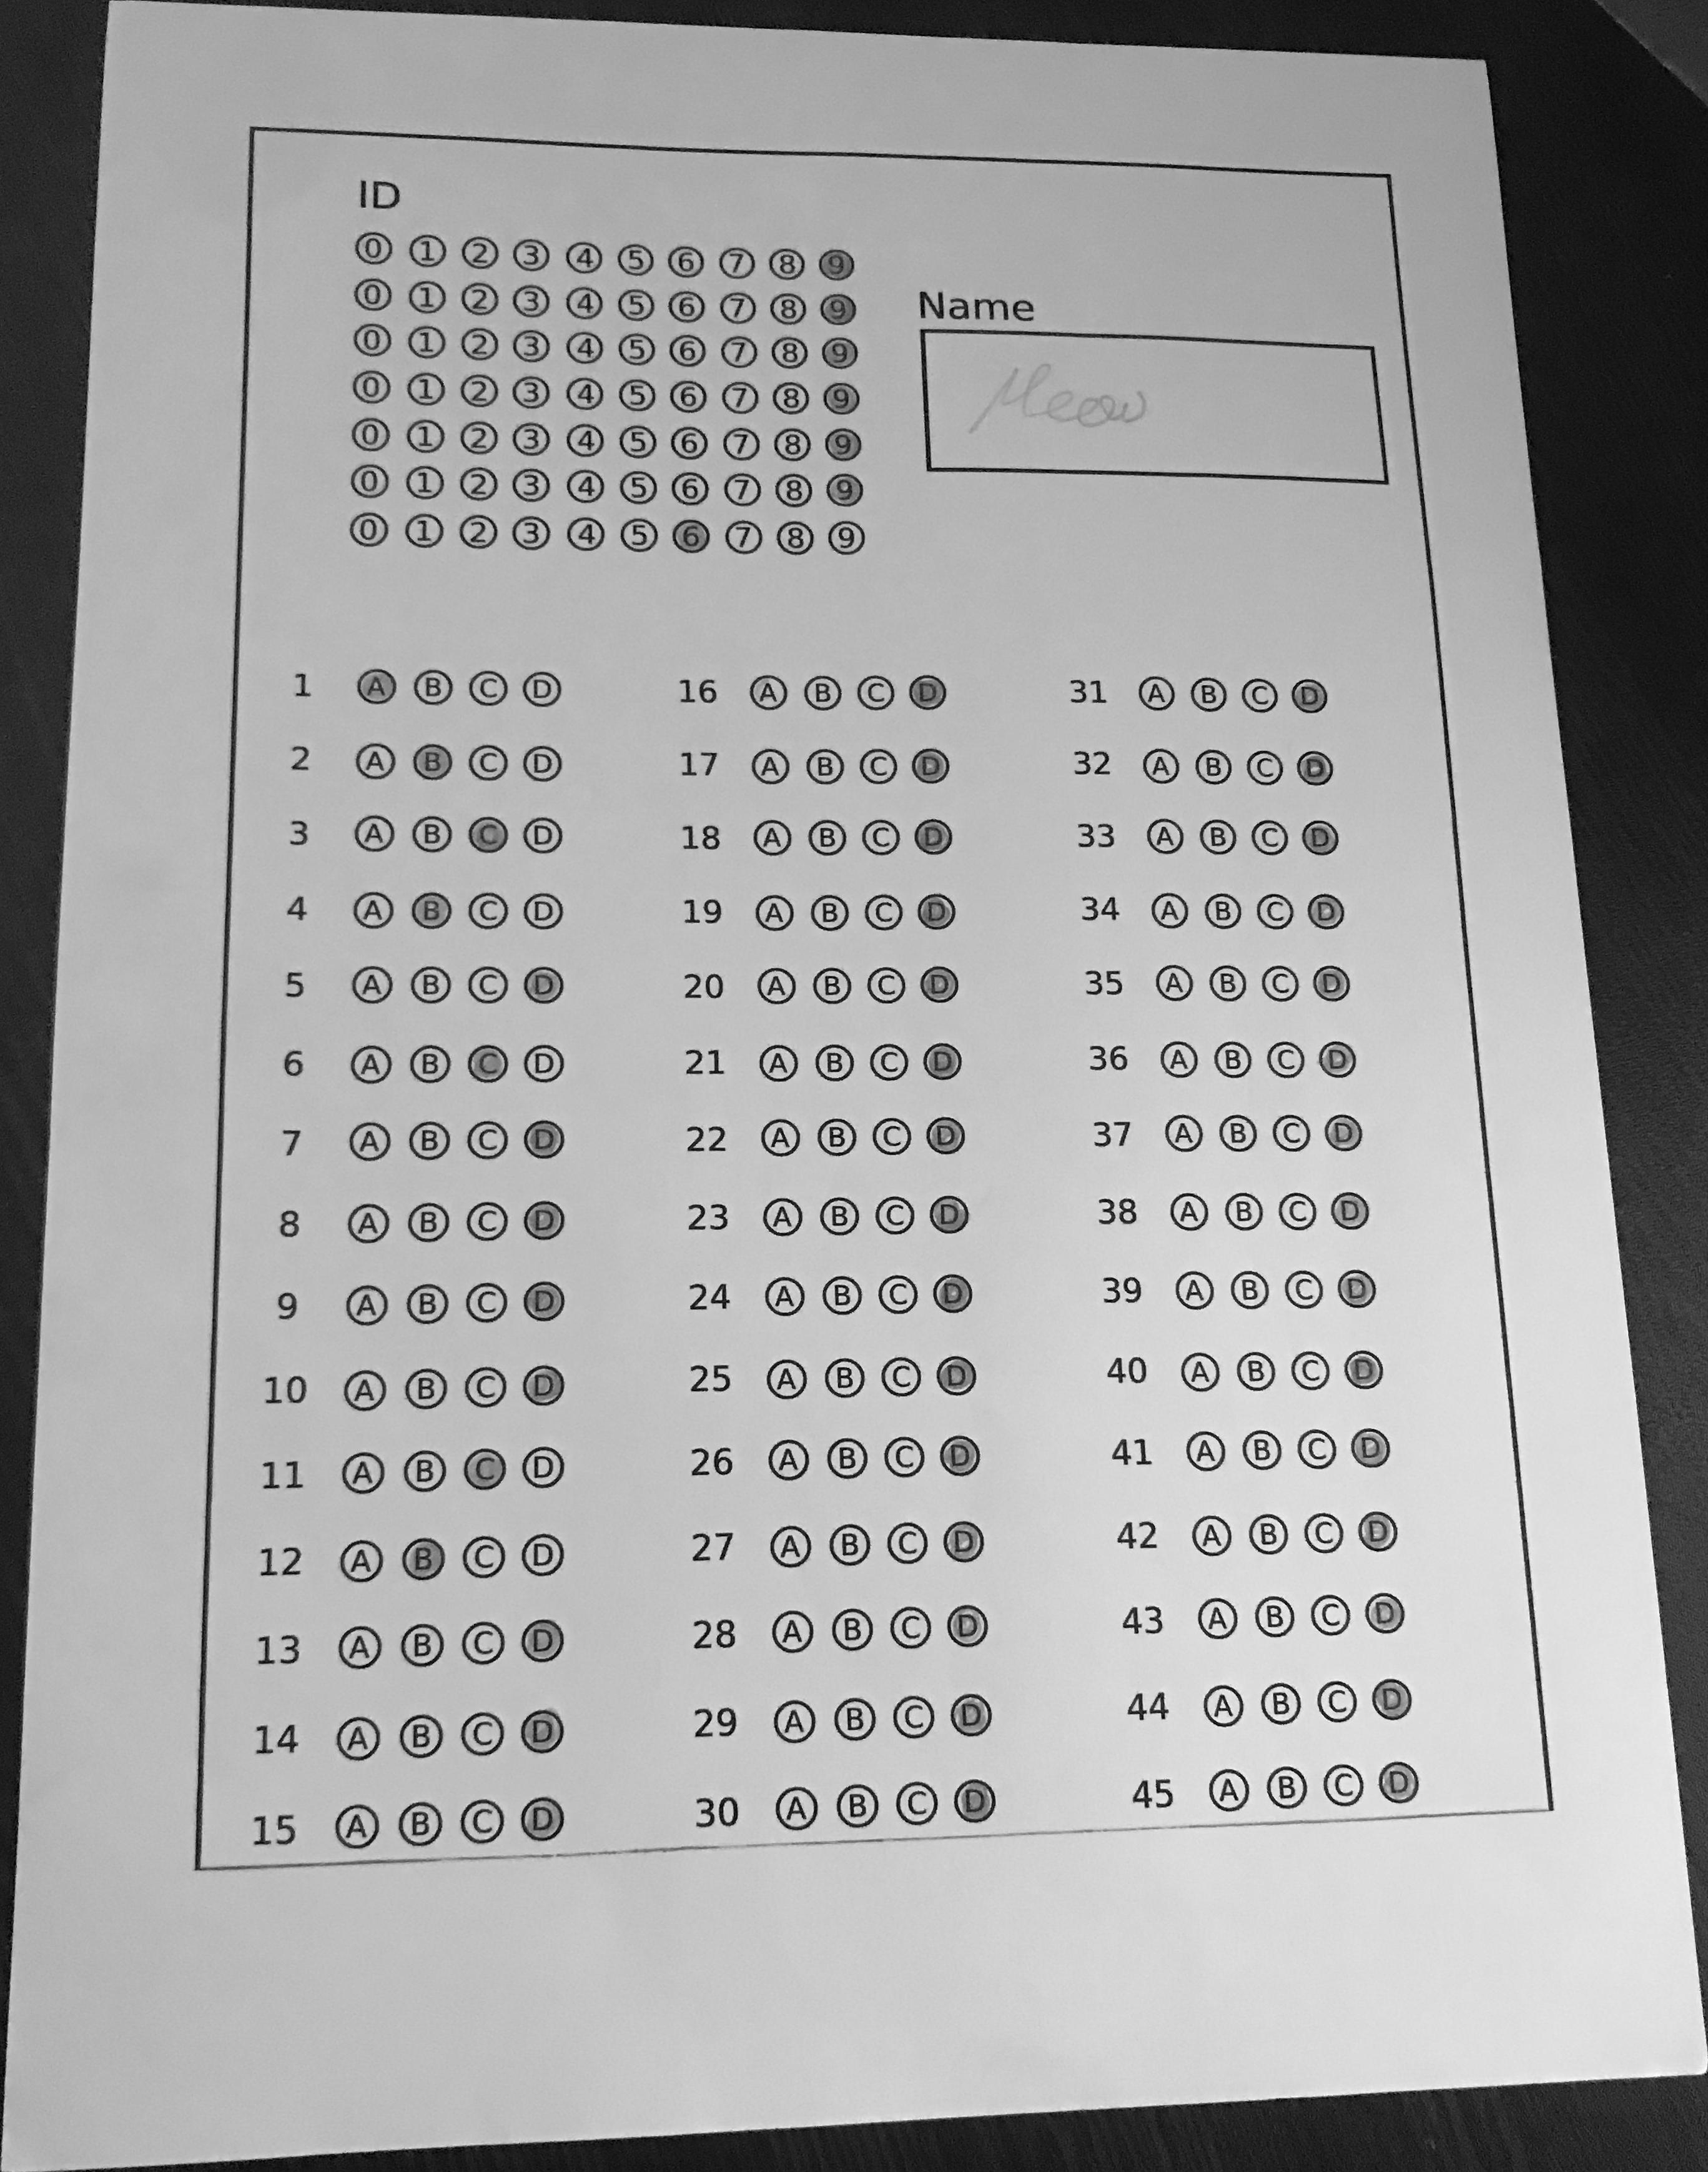 ID
0 1 2 3 4 5 6 7 8 9
0 1 2 3 4 5 6 7 8 9
0 1 2 3 4 5 6 7 8 9
0 1 2 3 4 5 6 7 8 9
0 1 2 3 4 5 6 7 8 9
0 1 2 3 4 5 6 7 8 9
0 1 2 3 4 5 6 7 8 9
Name
Meow
1 A B C D
2 A B C D
3 A B C D
4 A B C D
5 A B C D
6 A B C D
7 A B C D
8 A B C D
9 A B C D
10 A B C D
11 A B C D
12 A B C D
13 A B C D
14 A B C D
15 A B C D
16 A B C D
17 A B C D
18 A B C D
19 A B C D
20 A B C D
21 A B C D
22 A B C D
23 A B C D
24 A B C D
25 A B C D
26 A B C D
27 A B C D
28 A B C D
29 A B C D
30 A B C D
31 A B C D
32 A B C D
33 A B C D
34 A B C D
35 A B C D
36 A B C D
37 A B C D
38 A B C D
39 A B C D
40 A B C D
41 A B C D
42 A B C D
43 A B C D
44 A B C D
45 A B C D